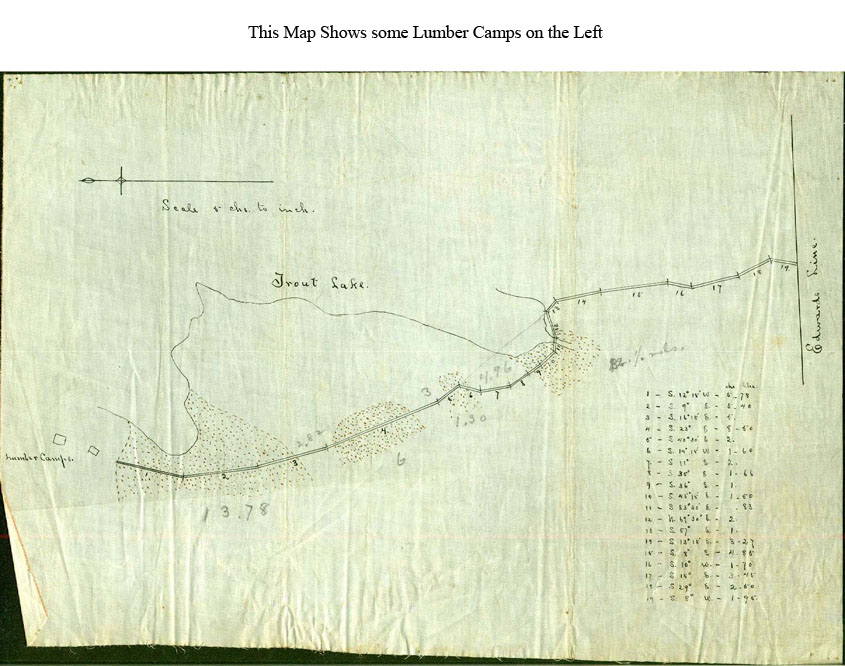 This Map Shows some Lumber Camps on the Left
Scale 5 chs. to inch.
Trout Lake.
Edwards Line.
Lumber Camps.
1 2 3 4 5 6 7 8 9
13 14 15 16 17 18 19
13.78
2.82
6
3
1.30
4.96
chs lks.
1 - S. 12° 15' W - 5 - 78
2 - S. 9° E - 5 - 40
3 - S. 16° 15' E - 5.
4 - S. 23° E - 8 - 50
5 - S. 40° 30' E - 2.
6 - S. 14° 15' W - 1 - 60
7 - S. 11° E - 2.
8 - S. 30° E - 1 - 66
9 - S. 36° E - 1.
10 - S. 45° 15' E - 1 - 50
11 - S. 83° 30' E - . 83
12 - N. 69° 30' E - 2.
13 - S. 57° E - 1.
14 - S. 13° 15' E - 3 - 27
15 - S. 8° E - 4 - 85
16 - S. 10° W - 1 - 70
17 - S. 15° E - 3 - 45
18 - S. 29° E - 2 - 50
19 - S. 8° W - 1 - 95